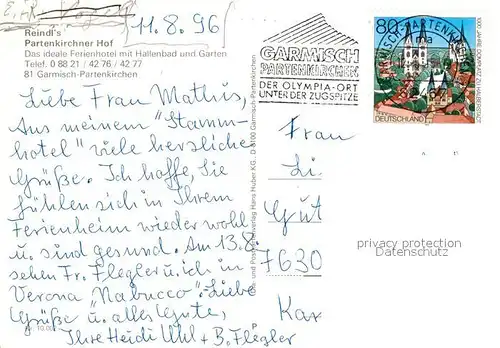 11.8.96
Reindl's
Partenkirchner Hof
Das ideale Ferienhotel mit Hallenbad und Garten
Telef. 0 88 21 / 42 76 / 42 77
81 Garmisch-Partenkirchen
Liebe Frau Mathis,
Aus meinem "Stamm-
hotel" viele herzliche
Grüße. Ich hoffe, Sie
fühlen sich in Ihrem
Ferienheim wieder wohl
u. sind gesund. Am 13.8.
sehen Fr. Flegler u. ich in
Verona "Nabucco". Liebe
Grüße u. alles Gute,
Ihre Heidi Uhl + B. Flegler
GARMISCH
PARTENKIRCHEN
DER OLYMPIA-ORT
UNTER DER ZUGSPITZE
80
1000 JAHRE DOMPLATZ ZU HALBERSTADT
DEUTSCHLAND
Hans Huber KG, D 8100 Garmisch-Partenkirchen
Frau
Li
Gut
7630
Kar
privacy protection
Datenschutz